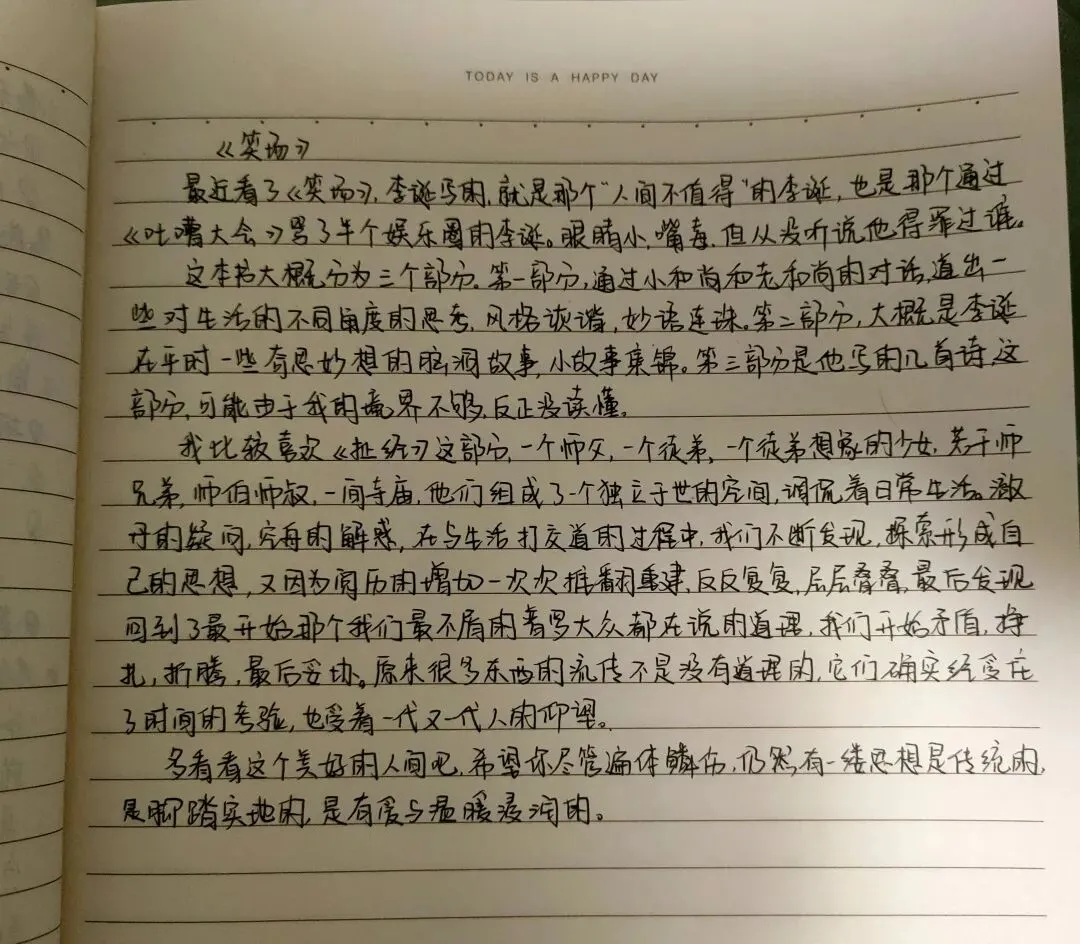 TODAY IS A HAPPY DAY
《笑场》
最近看了《笑场》,李诞写的,就是那个"人间不值得"的李诞,也是那个通过
《吐嘈大会》骂了半个娱乐圈的李诞。眼睛小,嘴毒,但从没听说他得罪过谁。
这本书大概分为三个部分。第一部分,通过小和尚和老和尚的对话,道出一
些对生活的不同角度的思考,风格诙谐,妙语连珠。第二部分,大概是李诞
在平时一些奇思妙想的脑洞故事,小故事集锦。第三部分是他写的几首诗,这
部分,可能由于我的境界不够,反正没读懂。
我比较喜欢《扯经》这部分,一个师父,一个徒弟,一个徒弟想象的少女,若干师
兄弟,师伯师叔,一间寺庙,他们组成了一个独立于世的空间,调侃着日常生活。激
丹的疑问,空舟的解惑,在与生活打交道的过程中,我们不断发现,探索形成自
己的思想,又因为阅历的增加一次次推翻重建,反反复复,层层叠叠,最后发现
回到了最开始那个我们最不屑的普罗大众都在说的道理,我们开始矛盾,挣
扎,折腾,最后妥协。原来很多东西的流传不是没有道理的,它们确实经受住
了时间的考验,也受着一代又一代人的仰望。
多看看这个美好的人间吧,希望你尽管遍体鳞伤,仍然有一缕思想是传统的,
是脚踏实地的,是有爱与温暖浸润的。